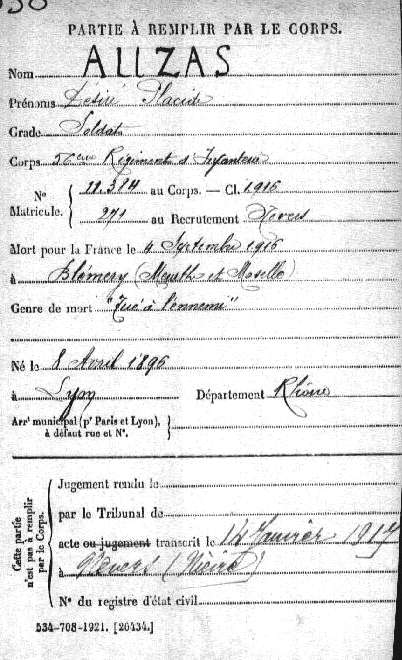 PARTIE À REMPLIR PAR LE CORPS.
Nom AUZAS
Prénoms Désiré Placide
Grade Soldat
Corps 56ème Régiment d'Infanterie
N° Matricule. 11.384 au Corps. — Cl. 1916
271 au Recrutement Nevers
Mort pour la France le 4 Septembre 1916
à Blémerey (Meurthe et Moselle)
Genre de mort "Tué à l'ennemi"
Né le 8 Avril 1896
à Lyon Département Rhône
Arrt municipal (pr Paris et Lyon), à défaut rue et N°.
Cette partie n'est pas à remplir par le Corps.
Jugement rendu le
par le Tribunal de
acte ou jugement transcrit le 14 Janvier 1917
à Nevers (Nièvre)
N° du registre d'état civil
534-708-1921. [26434.]